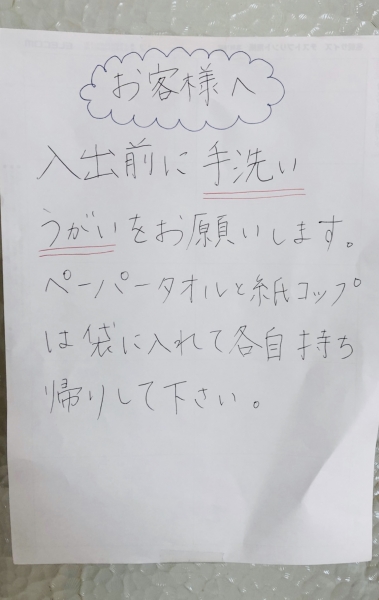 お客様へ
入出前に手洗い
うがいをお願いします。
ペーパータオルと紙コップ
は袋に入れて各自持ち
帰りして下さい。